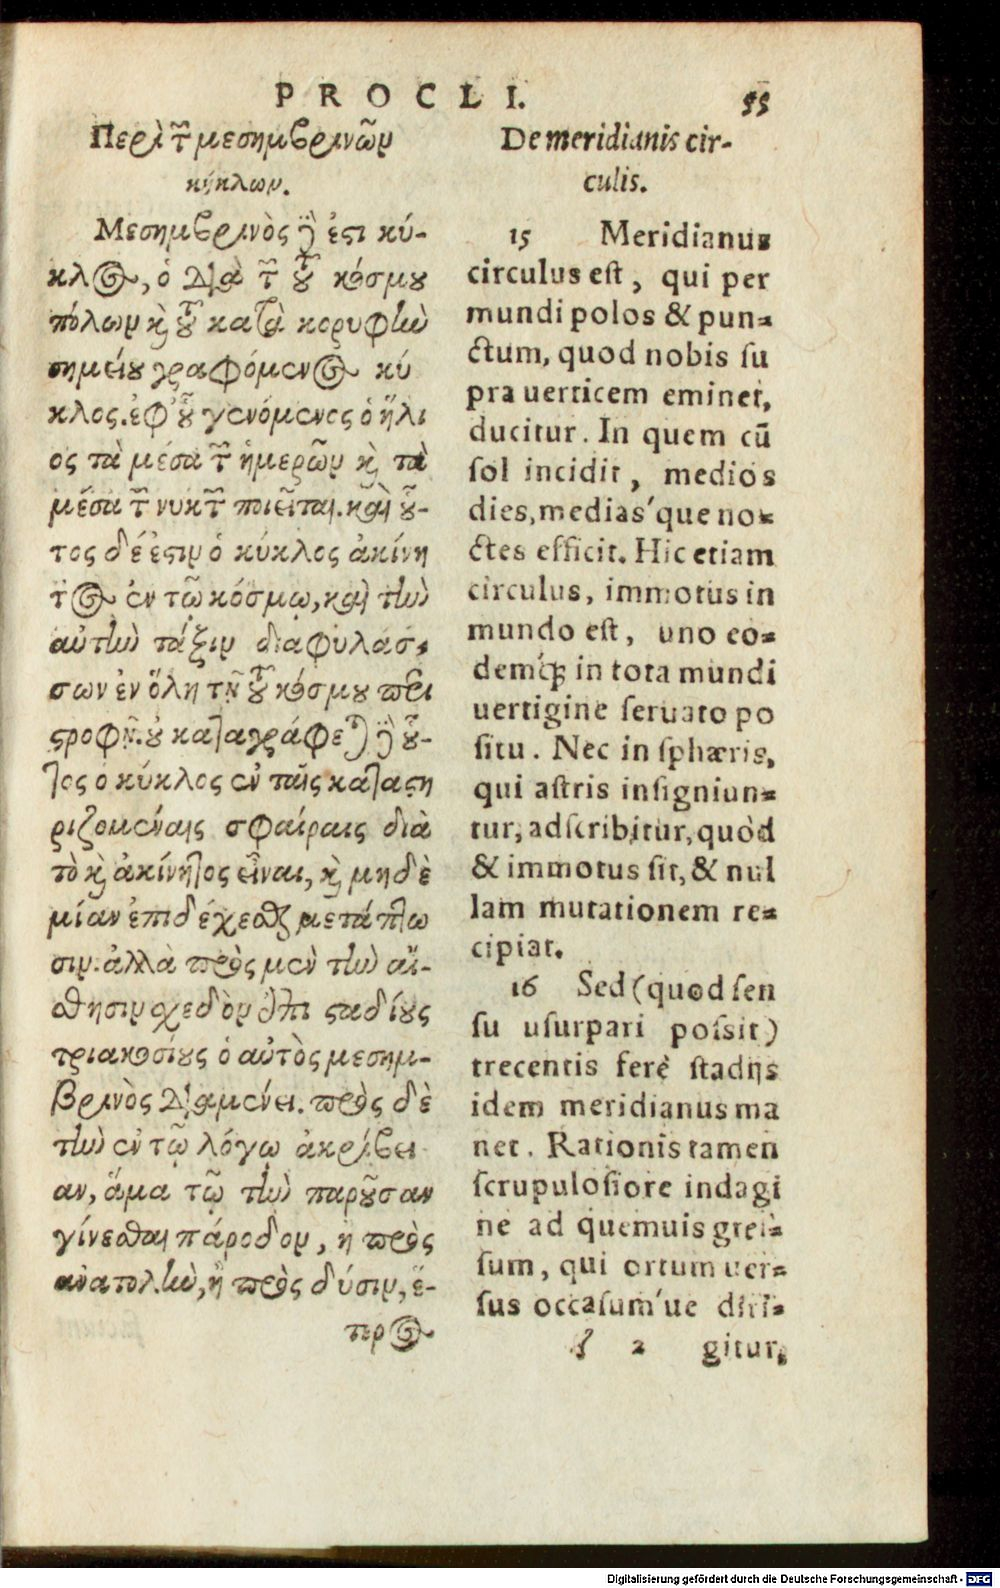 PROCLI. 55
Περὶ τ῀ μεσημβρινῶν
κύκλων.
Μεσημβρινὸς δ᾽ ἐστι κύ-
κλος, ὁ διὰ τ῀ τοῦ κόσμου
πόλων κὶ τοῦ κατὰ κορυφὴν
σημείου γραφόμενος κύ
κλος. ἐφ᾽ οὗ γενόμενος ὁ ἥλι
ος τὰ μέσα τ῀ ἡμερῶν κὶ τὰ
μέσα τ῀ νυκτ῀ ποιεῖται. καὶ οὗ-
τος δέ ἐστιν ὁ κύκλος ἀκίνη
τος ἐν τῷ κόσμῳ, καὶ τὴν
αὐτὴν τάξιν διαφυλάσ-
σων ἐν ὅλη τῇ τοῦ κόσμου περι
στροφῇ. οὐ καταγράφεται δ᾽ οὗ-
τος ὁ κύκλος ἐν ταῖς καταστη
ριζομέναις σφαίραις διὰ
τὸ κὶ ἀκίνητος εἶναι, κὶ μηδὲ
μίαν ἐπιδέχεσθαι μετάπτω
σιν. ἀλλὰ πρὸς μὲν τὴν αἴ-
σθησιν σχεδὸν ἐπὶ σταδίους
τριακοσίους ὁ αὐτὸς μεσημ-
βρινὸς διαμένει. πρὸς δὲ
τὴν ἐν τῷ λόγῳ ἀκρίβει
αν, ἅμα τῷ τὴν παροῦσαν
γίνεσθαι πάροδον, ἢ πρὸς
ἀνατολὴν, ἢ πρὸς δύσιν, ἕ-
τερος
De meridianis cir-
culis.
15 Meridianus
circulus est, qui per
mundi polos & pun-
ctum, quod nobis su
pra uerticem eminet,
ducitur. In quem cũ
sol incidit, medios
dies, medias´que no-
ctes efficit. Hic etiam
circulus, immotus in
mundo est, uno eo-
demq́ꝫ in tota mundi
uertigine seruato po
situ. Nec in sphæris,
qui astris insigniun-
tur, adscribitur, quòd
& immotus sit, & nul
lam mutationem re-
cipiat.
16 Sed (quod sen
su usurpari possit)
trecentis ferè stadijs
idem meridianus ma
net. Rationis tamen
scrupulosiore indagi
ne ad quemuis gres-
sum, qui ortum uer-
sus occasum´ue diri-
f 2 gitur,
Digitalisierung gefördert durch die Deutsche Forschungsgemeinschaft - DFG